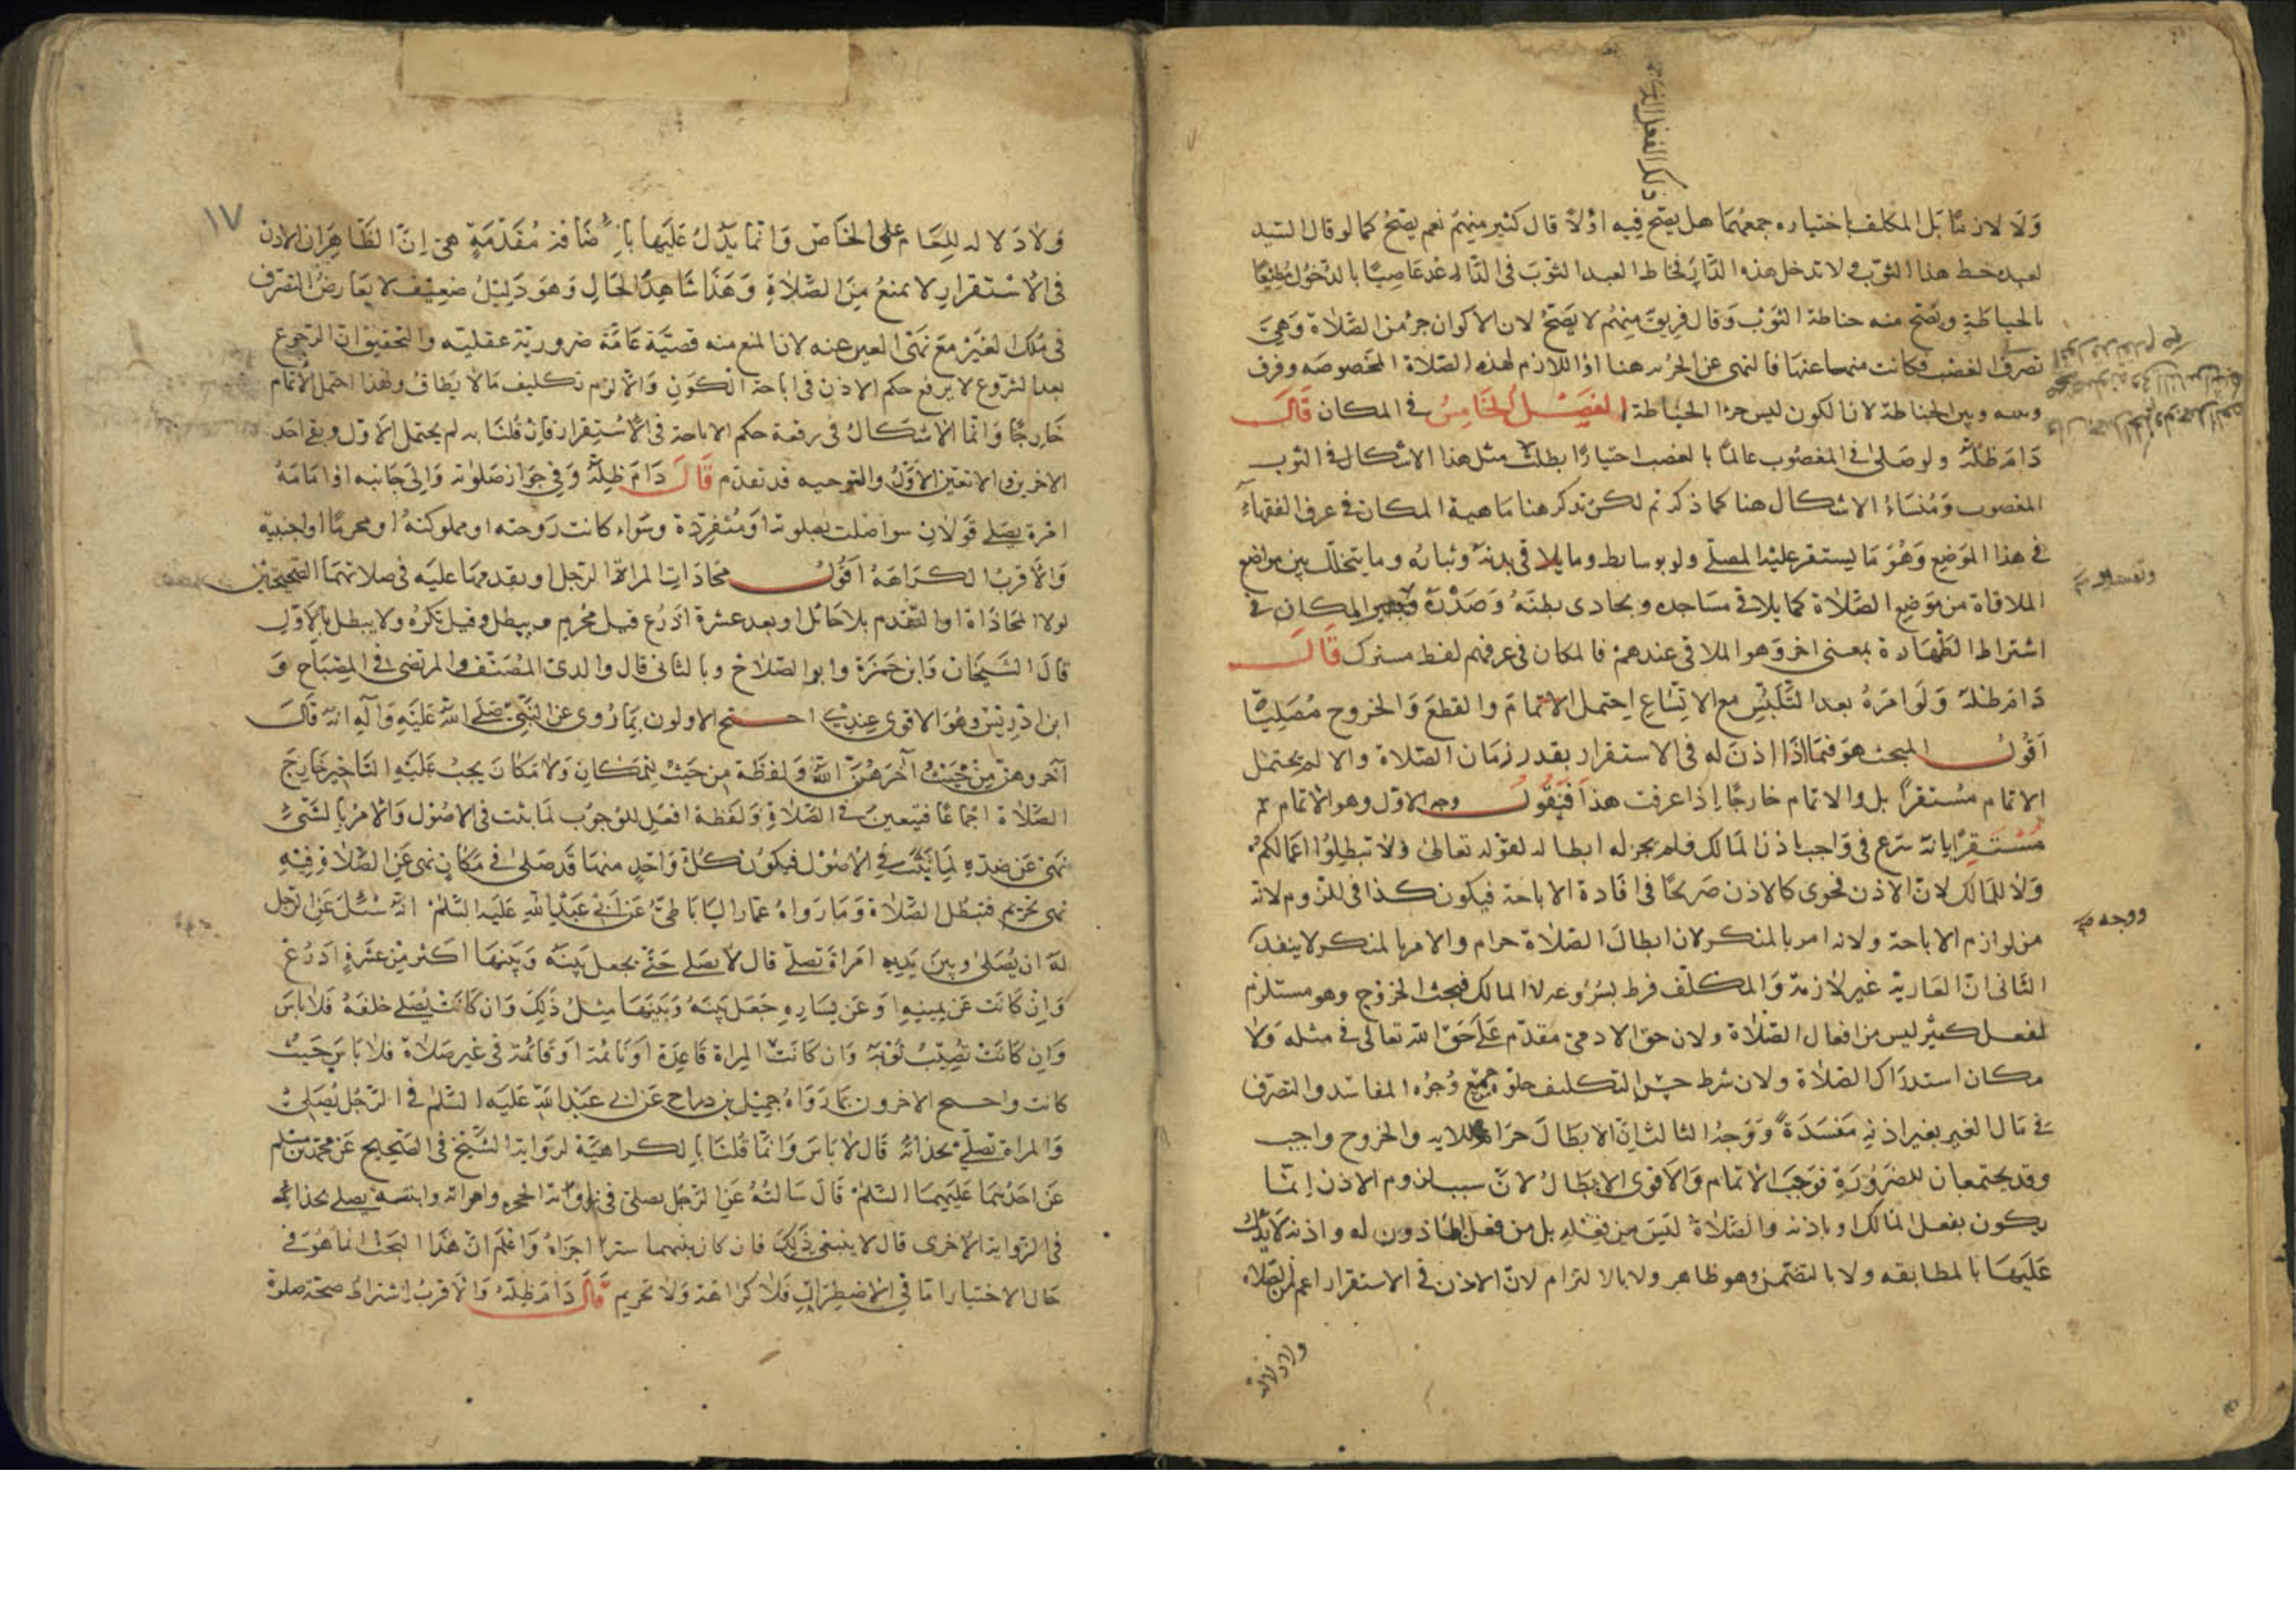 ولا لازمًا بل المكلف باختياره جمعهما هل يصح فيه اولا قال كثير منهم نعم يصح كما لو قال السيد
لعبده خط هذا الثوب ولا تدخل هذه الدار فخاط العبد الثوب في الدار عاصيًا بالدخول مطيعًا
بالخياطة ويصح منه خياطة الثوب وقال فريق منهم لا يصح لان الاكوان جزء من الصلاة وهي
تصرف الغصب فكانت منهيا عنها فالنهي عن الجزء هنا اذ اللازم لهذه الصلاة المخصوصه وفرق
بينه وبين الخياطة لان الكون ليس جزء الخياطة الفصل الخامس في المكان قال
دام ظله ولو صلى في المغصوب عالمًا بالغصب اختيارًا بطلت مثل هذا الاشكال في الثوب
المغصوب ومنشاء الاشكال هنا كما ذكر ثم لكن نذكر هنا ماهية المكان في عرف الفقهاء
في هذا الموضع وهو ما يستقر عليه المصلي ولو بوسايط وما يلاقي بدنه وثيابه وما يتخلل بين مواضع
الملاقاة من موضع الصلاة كما يلاقي مساجده ويحاذي بطنه وصدره المكان في
اشتراط الطهارة بمعنى اخر وهو الملاقي عندهم فالمكان في عرفهم لفظ مشترك قال
دام ظله ولو امره بعد التلبس مع الاتساع احتمل الاتمام والقطع والخروج مصليًا
اقول المبحث هو فيما اذا اذن له في الاستقرار بقدر زمان الصلاة والا لم يحتمل
الاتمام مستقرًا بل والاتمام خارجًا اذا عرفت هذا فنقول وجه الاول وهو الاتمام
مستقرًا بانه شرع في واجب باذن المالك فلم يجز له ابطاله لقوله تعالى ولا تبطلوا اعمالكم
ولا للمالك لان الاذن فحوى كالاذن صريحًا في افادة الاباحة فيكون كذا في اللزوم لانه
من لوازم الاباحة ولانه امر بالمنكر لان ابطال الصلاة حرام والامر بالمنكر لا ينفد
الثاني ان العارية غير لازمة والمكلف فرط بشروعه المالك فيجب الخروج وهو مستلزم
لفعل كثير ليس من افعال الصلاة ولان حق الادمي مقدم على حق الله تعالى في مثله ولا
مكان استدراك الصلاة ولان شرط حسن التكليف خلوه جميع وجوه المفاسد والتصرف
في مال الغير بغير اذنه مفسدة ووجه الثالث ان الابطال حرام للاية والخروج واجب
وقد يجتمعان للضرورة فوجب الاتمام والاقوى الابطال لان سبب لزوم الاذن انما
يكون بفعل المالك او باذنه والصلاة ليس من فعله بل من فعل الماذون له واذنه لا يدل
عليها بالمطابقه ولا بالتضمن وهو ظاهر ولا بالالتزام لان الاذن في الاستقرار اعم من الصلاه
ووجه
ولا دلالة
١٧
ولا دلالة للعام على الخاص وانما يدل عليها باضافة مقدمة هي ان الظاهر ان الاذن
في الاستقرار لا يمنع من الصلاة وهذا شاهد الحال وهو دليل ضعيف لا يعارض التصرف
في ملك الغير مع نهي العين عنه لان المنع منه قضية عامة ضرورية عقلية والتحقيق ان الرجوع
بعد الشروع لا يرفع حكم الاذن في اباحة الكون والا لزم تكليف ما لا يطاق ولهذا احتمل الاتمام
خارجًا وانما الاشكال في رفعه حكم الاباحة في الاستقرار فان قلنا به لم يحتمل الاول وبقي احد
الاخرين والا تعين الاول والتوجيه قد تقدم قال دام ظله وفي جواز صلوته والى جانبه او امامه
امراة يصلي قولان سوا صلت بصلوته او منفردة وسواء كانت زوجته او مملوكته او محرمًا او اجنبية
والاقرب الكراهة اقول محاذات المراة الرجل او تقدمها عليه في صلاتهما الصحيحتين
لولا المحاذاة او التقدم بلا حائل او بعد عشرة اذرع قيل محرم مبطل وقيل تكره ولا يبطل بالاول
قال الشيخان وابن حمزة وابو الصلاح وبالثاني قال والدي المصنف والمرتضى في المصباح و
ابن ادريس وهو الاقوى عندي احتج الاولون بما روي عن النبي صلى الله عليه وآله انه قال
آخروهن من حيث آخرهن الله ولفظة من حيث للمكان ولا مكان يجب عليه التاخير خارج
الصلاة اجماعًا فتعين في الصلاة ولفظة افعل للوجوب لما ثبت في الاصول والامر بالشيء
نهي عن ضده لما ثبت في الاصول فيكون كل واحد منهما قد صلى في مكان نهي عن الصلاة فيه
نهي تحريم فتبطل الصلاة وما رواه عمار الساباطي عن ابي عبد الله عليه السلم انه سئل عن الرجل
له ان يصلي وبين يديه امراة تصلي قال لا يصلي حتى يجعل بينه وبينها اكثر من عشرة اذرع
وان كانت عن يمينه او عن يساره جعل بينه وبينها مثل ذلك وان كانت يصلي خلفه فلا باس
وان كانت تصيب ثوبه وان كانت المراة قاعدة او نائمة او قائمة في غير صلاة فلا باس حيث
كانت واحتج الاخرون بما رواه جميل بن دراج عن ابي عبد الله عليه السلم في الرجل يصلي
والمراة تصلي بحذائه قال لا باس وانما قلنا بالكراهية لرواية الشيخ في الصحيح عن محمد بن مسلم
عن احدهما عليهما السلم قال سالته عن الرجل يصلي في زاوية الحجرة وامراته وابنته يصلي بحذائه
في الزواية الاخرى قال لا ينبغي ذلك فان كان بينهما سترا اجزاه واعلم ان هذا البحث انما هو في
حال الاختيار اما في الاضطرار فلا كراهة ولا تحريم قال دام ظله والاقرب اشتراط صحة صلوة